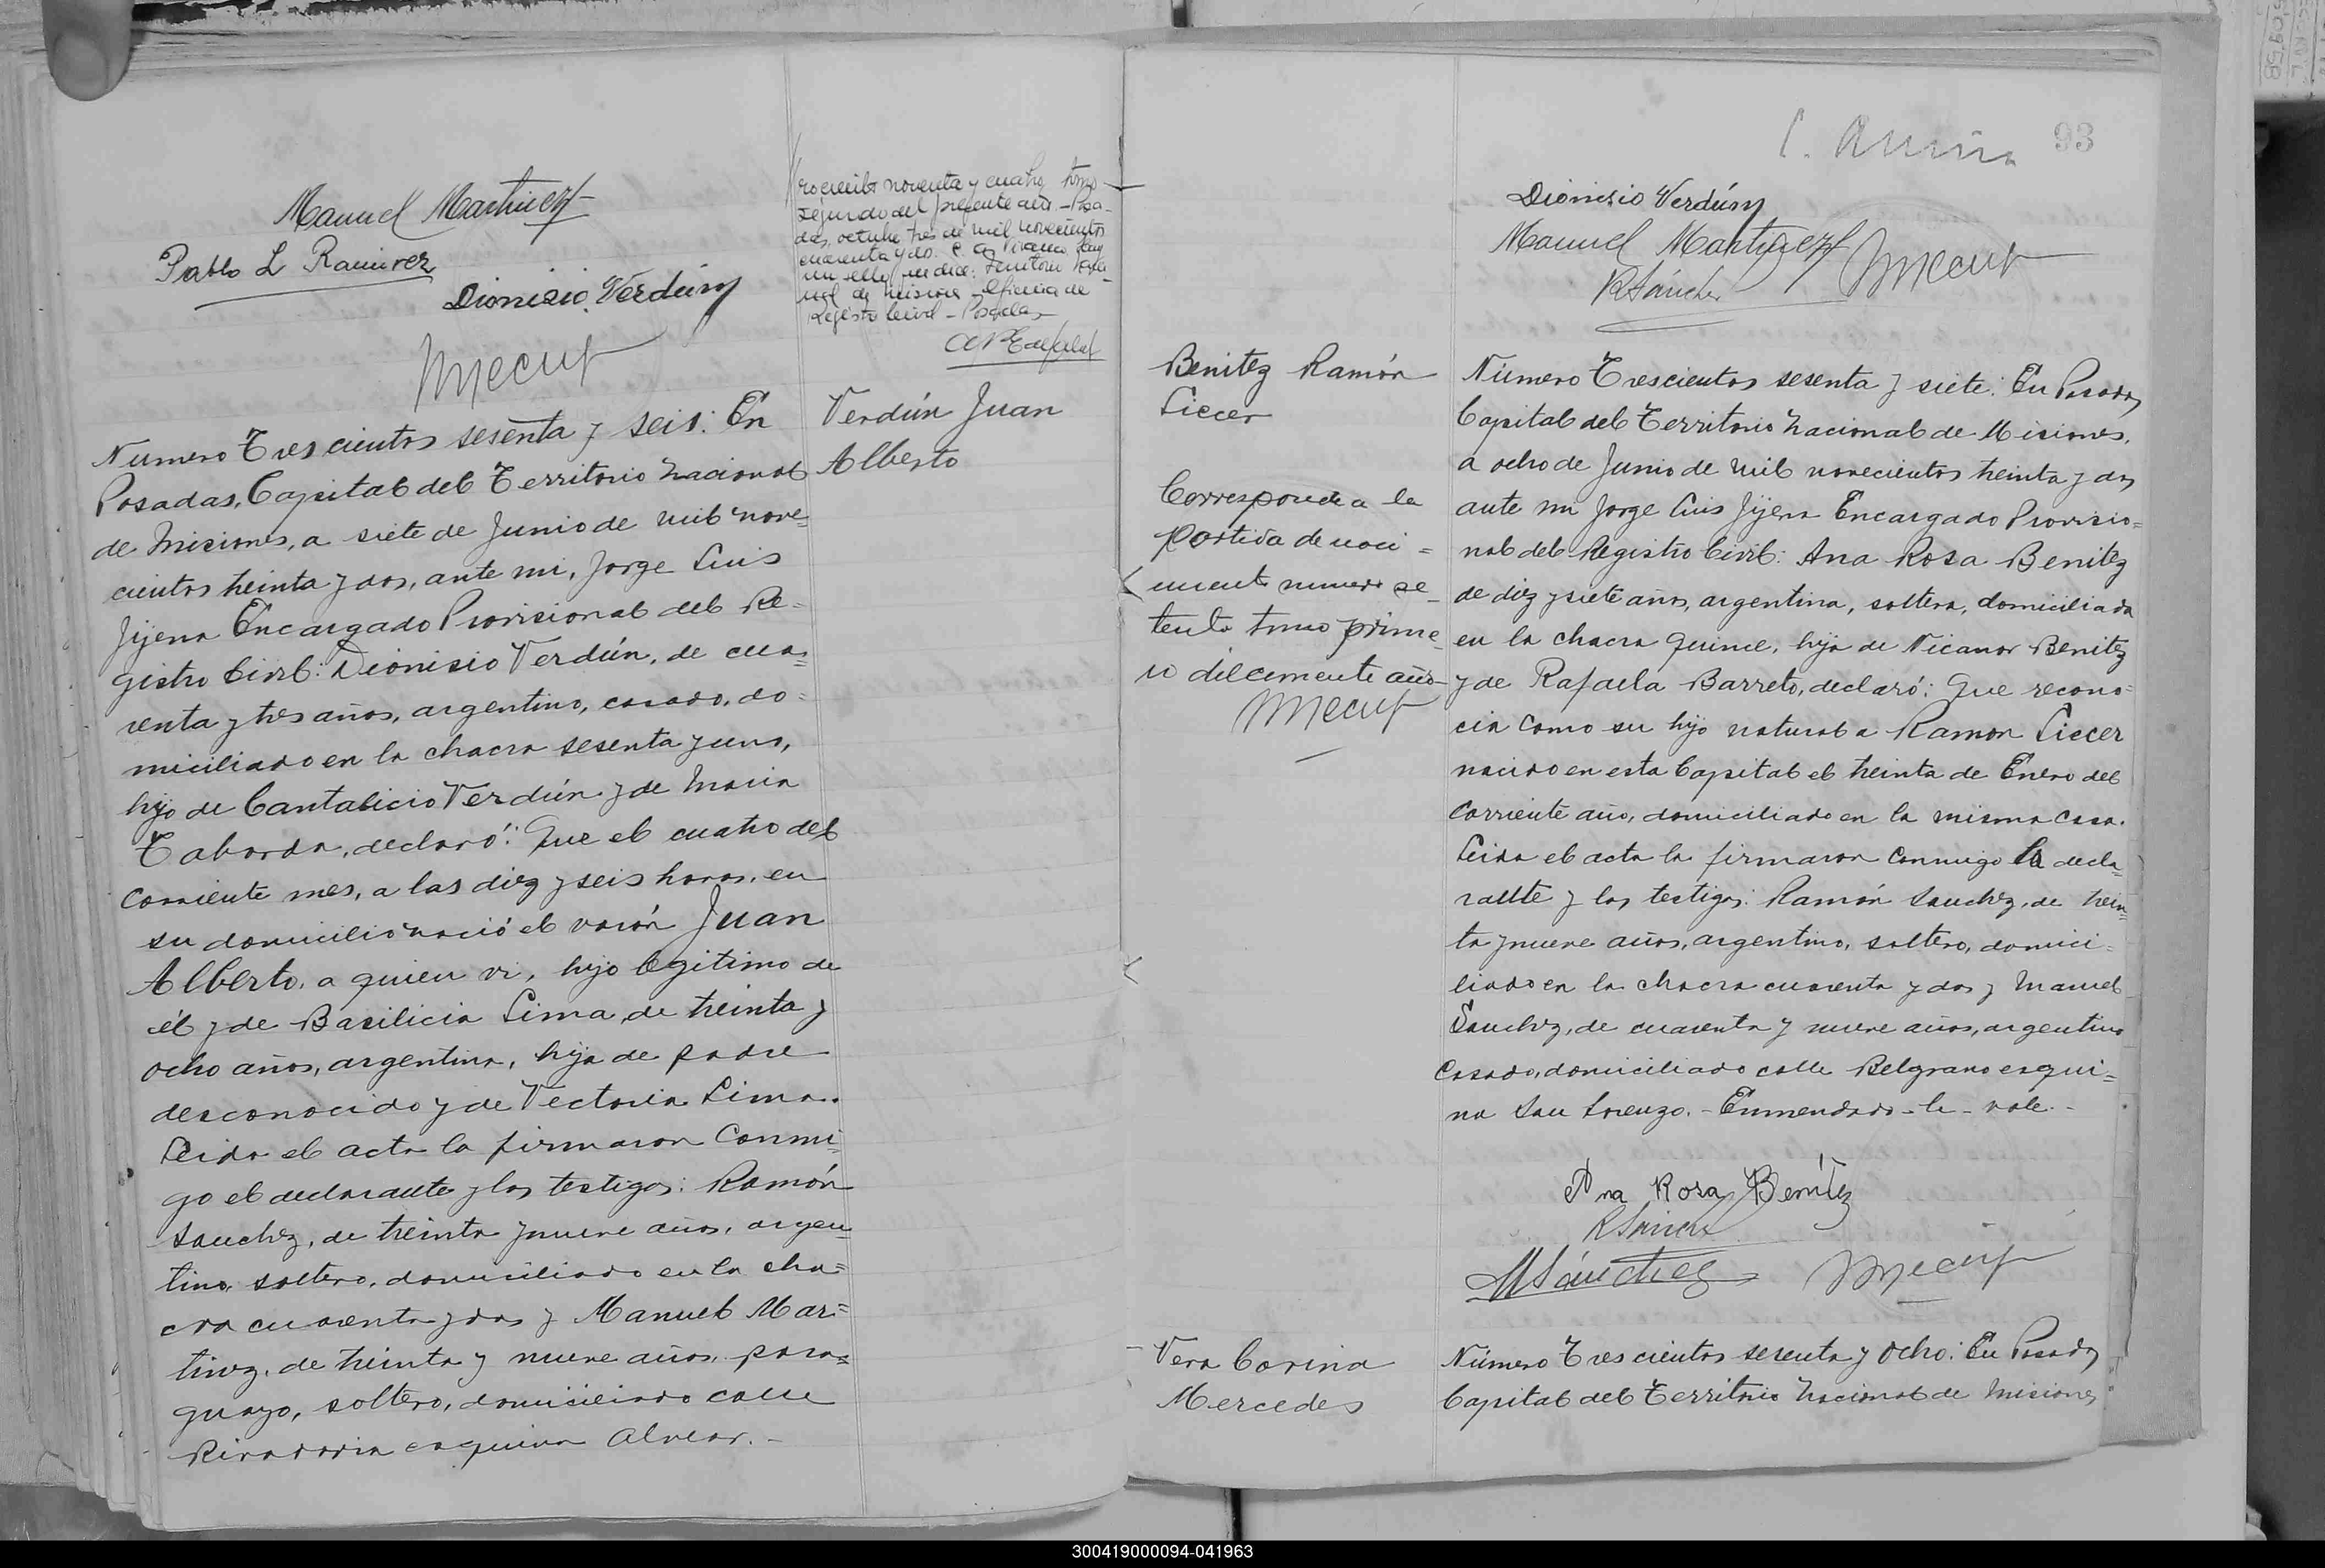 Manuel Martinez
Pablo L Ramirez
Dionisio Verdún
noventa y cuatro tomo
segundo del presente año. - Posa-
das, octubre tres de mil novecientos
cuarenta y dos.
un sello que dice: Territorio Nacio-
nal de Misiones Oficina de
Registro Civil - Posadas -
Numero Trescientos sesenta y seis: En
Posadas, Capital del Territorio Nacional
de Misiones, a siete de Junio de mil nove=
cientos treinta y dos, ante mi, Jorge Luis
Jijena Encargado Provisional del Re=
gistro Civil: Dionisio Verdún, de cua=
renta y tres años, argentino, casado, do=
miciliado en la chacra sesenta y uno,
hijo de Cantalicio Verdún y de Maria
Taborda, declaró: Que el cuatro del
corriente mes, a las diez y seis horas, en
su domicilio nació el varón Juan
Alberto, a quien vi, hijo legitimo de
él y de Basilicia Lima, de treinta y
ocho años, argentina, hija de padre
desconocido y de Vectoria Lima.
Leida el acta la firmaron conmi=
go el declarante y los testigos: Ramón
Sanchez, de treinta y nueve años, argen=
tino, soltero, domiciliado en la cha=
cra cuarenta y dos y Manuel Mar=
tinez, de treinta y nueve años, para=
guayo, soltero, domiciliado calle
Rivadavia esquina Alvear. -
Verdún Juan
Alberto
93
Dionisio Verdún
Manuel Martinez
R Sánchez
Benitez Ramón
Siccer
Corresponde a la
partida de naci=
miento numero se-
tenta tomo prime-
ro del corriente año-
Número Trescientos sesenta y siete: En Posadas,
Capital del Territorio Nacional de Misiones,
a ocho de Junio de mil novecientos treinta y dos,
ante mi Jorge Luis Jijena Encargado Provisio=
nal del Registro Civil: Ana Rosa Benitez
de diez y siete años, argentina, soltera, domiciliada
en la chacra quince, hija de Nicanor Benitez
y de Rafaela Barreto, declaró: Que recono=
cia como su hijo natural a Ramon Siccer
nacido en esta Capital el treinta de Enero del
corriente año, domiciliado en la misma casa.
Leida el acta la firmaron conmigo la decla=
rante y los testigos: Ramón Sanchez, de trein=
ta y nueve años, argentino, soltero, domici=
liado en la chacra cuarenta y dos y Manuel
Sanchez, de cuarenta y nueve años, argentino
casado, domiciliado calle Belgrano esqui=
na San Lorenzo. - Enmendado - la - vale. -
Ana Rosa Benítez
R Sánchez
M Sánchez
Vera Corina
Mercedes
Número Trescientos sesenta y ocho: En Posadas,
Capital del Territorio Nacional de Misiones,
300419000094-041963